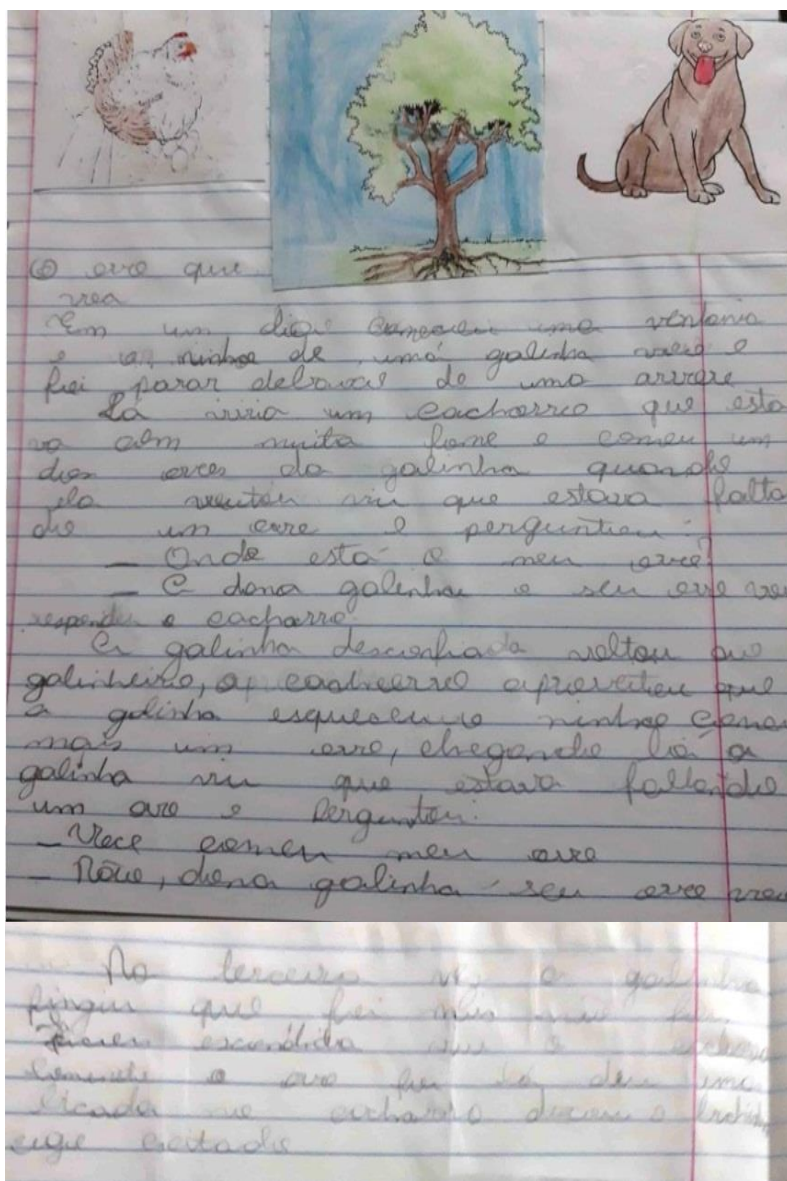 O ovo que
voa
Em um dia começou uma ventania
e o ninho de uma galinha voou e
foi parar debaixo de uma arvore
Lá vivia um cachorro que esta
va com muita fome e comeu um
dos ovos da galinha quando
ela voutou viu que estava falta
do um ovo e perguntou:
— Onde está o meu ovo?
— O dona galinha o seu ovo voo
respondeu o cachorro.
A galinha desconfiada voltou ao
galinheiro, o cachorro aproveitou que
a galinha esqueceu o ninho e come
mais um ovo, chegando lá a
galinha viu que estava faltando
um ovo e perguntou:
— Voce comeu meu ovo
— Não, dona galinha seu ovo voo
Na terceira vez a galinha
fingiu que foi mas não foi,
escondida viu o cachorro
comendo o ovo foi lá deu uma
bicada no cachorro deixou o